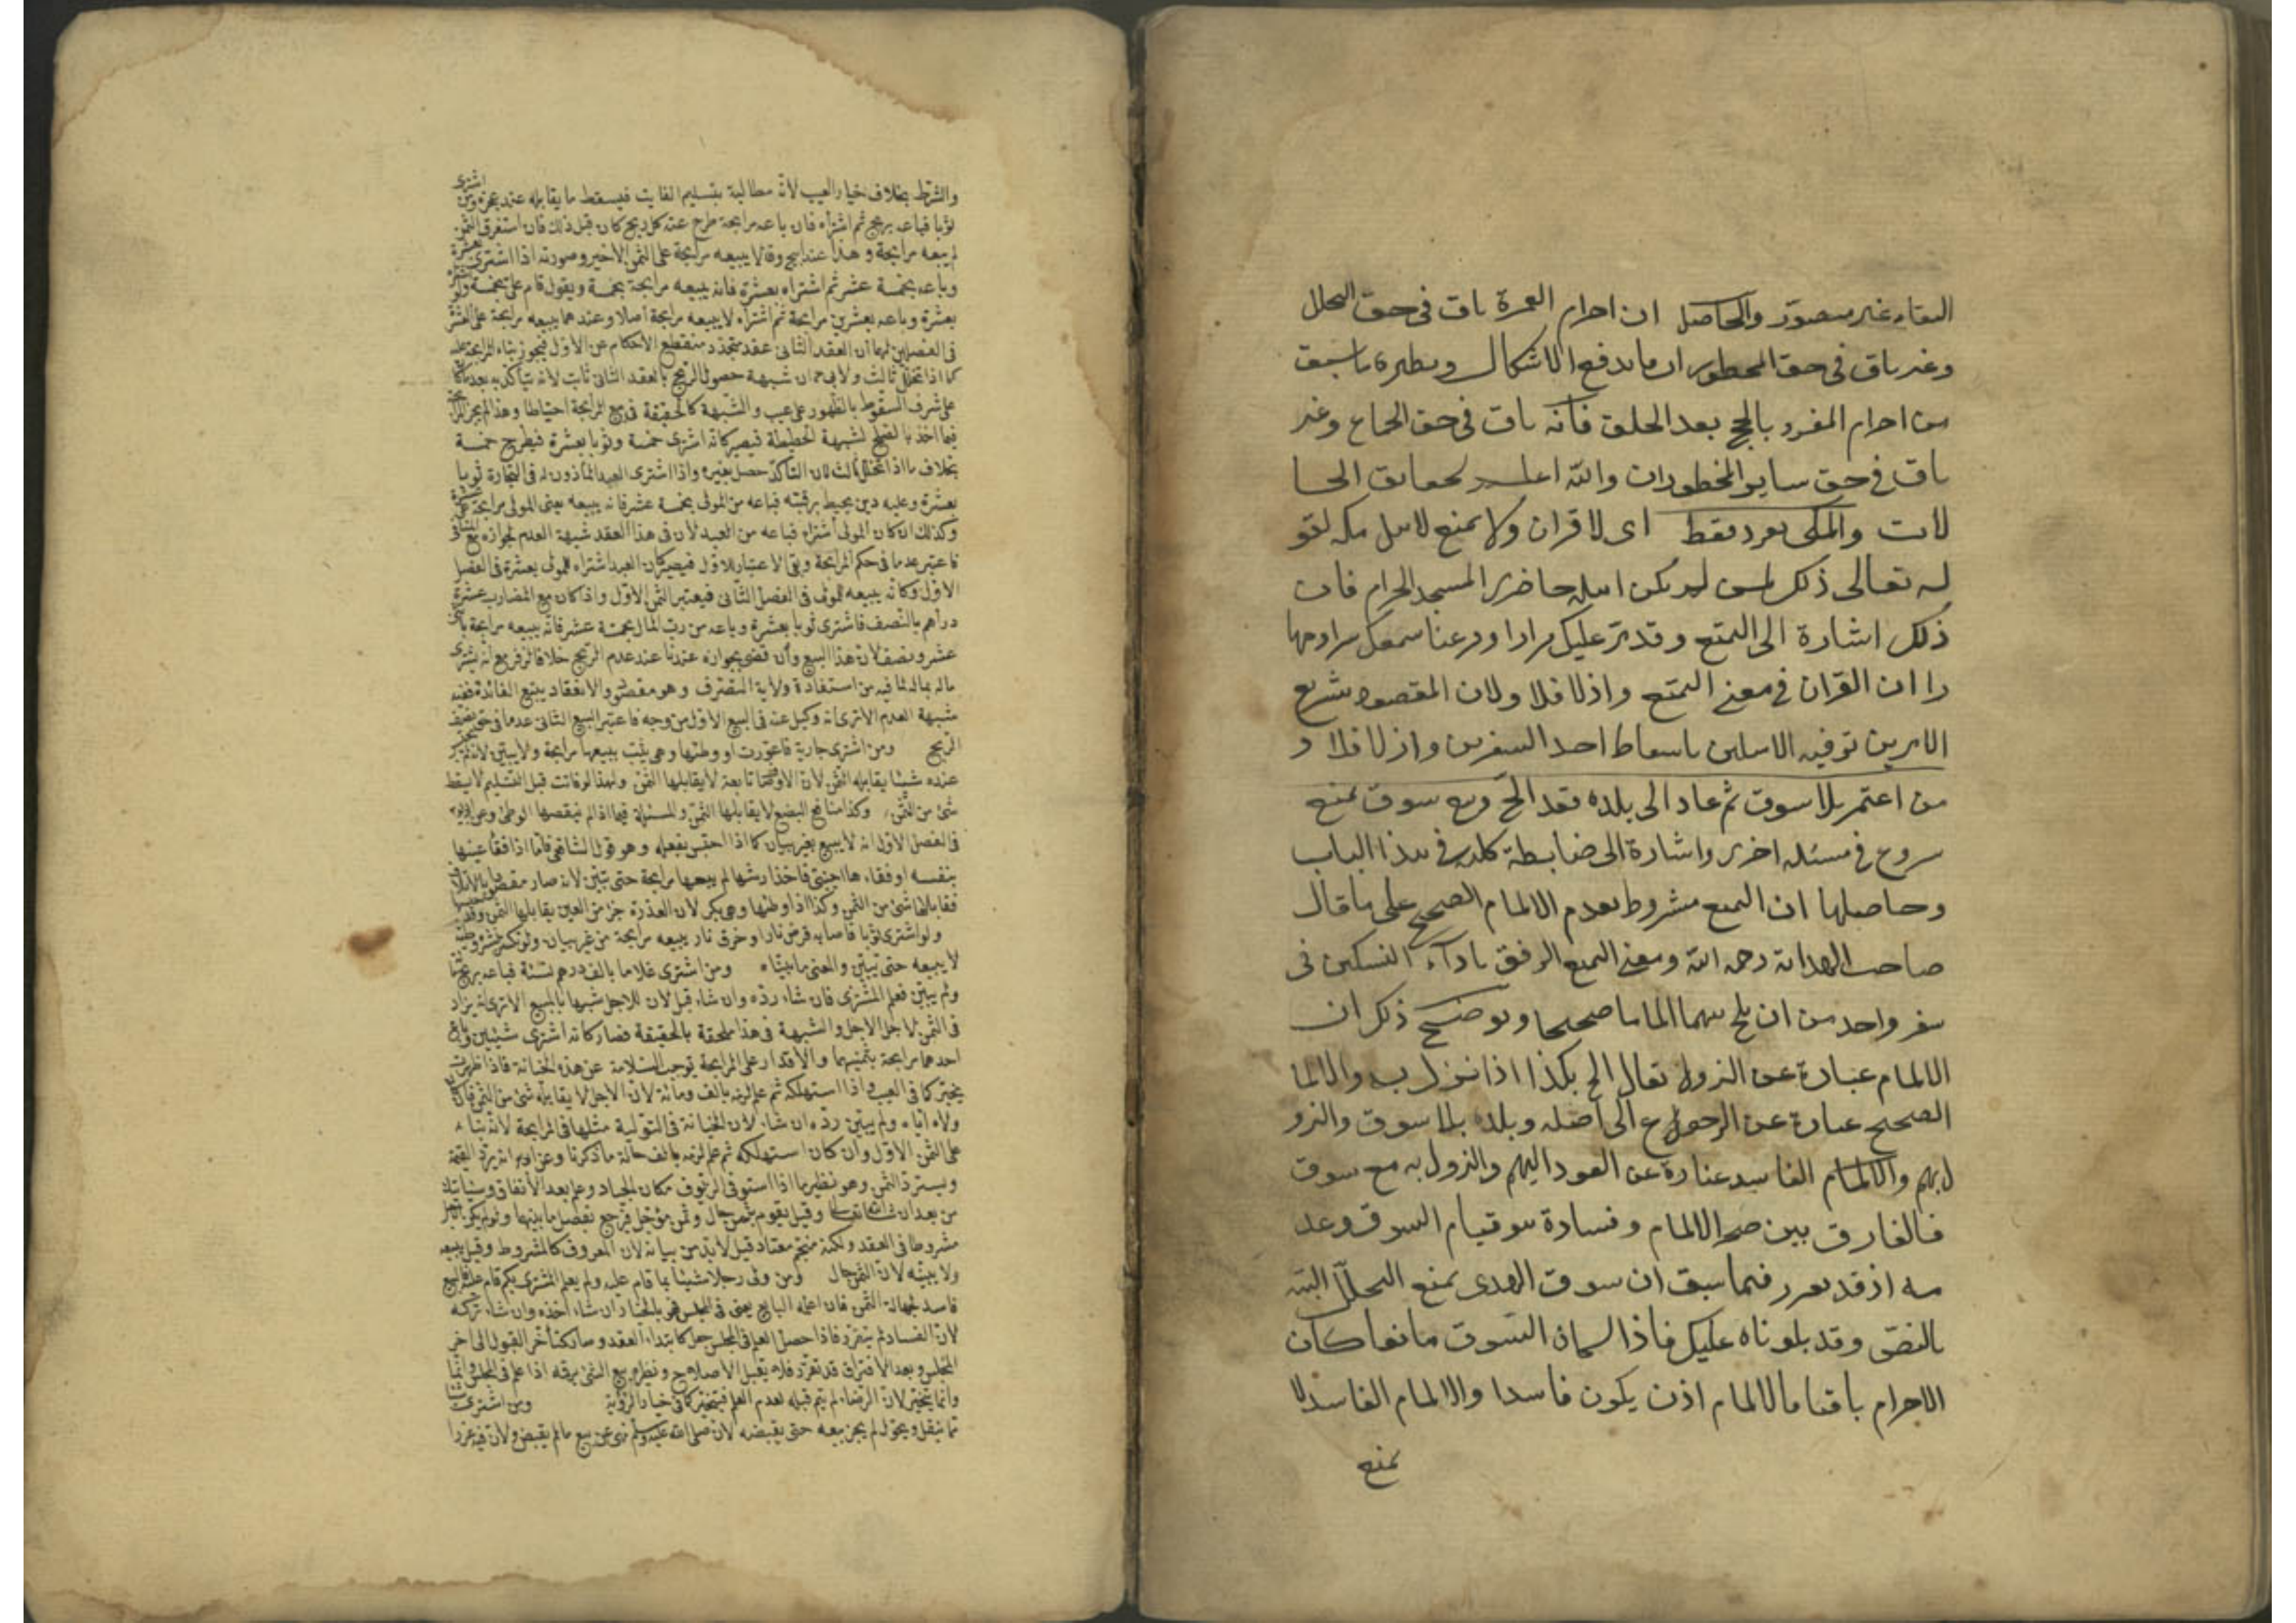 البقاء غير متصور والحاصل ان احرام العمرة باق في حق التحلل
وغير باق في حق المحظور ان ما يدفع الاشكال ونظيره ما سبق
من احرام المفرد بالحج بعد الحلق فانه باق في حق الجماع وغير
باق في حق ساير المحظورات والله اعلم بحقايق الحا
لات والمكي يفرد فقط اى لا قران ولا تمتع لاهل مكه لقو
له تعالى ذلك لمن لم يكن اهله حاضرى المسجد الحرام فان
ذلك اشارة الى التمتع وقد مر عليك مرارا وقرعنا سمعك
را ان القران في معنى التمتع واذ لا فلا ولان المقصود شرع
الامرين ترفيه الاهلين باسقاط احد السفرين واذ لا فلا و
من اعتمر بلا سوق ثم عاد الى بلده فقد الم ومع سوق تمتع
شروع في مسئله اخرى واشارة الى ضابطة كليه في هذا الباب
وحاصلها ان التمتع مشروط بعدم الالمام الصحيح على ما قال
صاحب الهداية رحمه الله ومعنى التمتع الرفق باداء النسكين فى
سفر واحد من ان يلم بينهما الماما صحيحا وتوضيح ذلك ان
الالمام عبارة عن النزول يقال الم بكذا اذا نزل به والالما
الصحيح عبارة عن الرجوع الى اهله وبلده بلا سوق والنزو
ل بهم والالمام الفاسد عبارة عن العود اليهم والنزول به مع سوق
فالفارق بين صحة الالمام وفسادة هو قيام السوق وعد
مه اذ قد تقرر فيما سبق ان سوق الهدى يمنع التحلل البته
بالنص وقد تلوناه عليك فاذا كان السوق مانعا كان
الاحرام باقيا فالالمام اذن يكون فاسدا والالمام الفاسد لا
يمنع
والشرط بخلاف خيار العيب لانه مطالبة بتسليم الفايت فيسقط ما يقابله عند عجزه ومن اشترى
ثوبا فباعه بربح ثم اشتراه فان باعه مرابحة طرح عنه كل ربح كان قبل ذلك فان استغرق الثمن
لم يبعه مرابحة وهذا عند ابي ح وقالا يبيعه مرابحة على الثمن الاخير وصورته اذا اشترى
وباعه بخمسة عشر ثم اشتراه بعشرة فانه يبيعه مرابحة بخمسة ويقول قام على بخمسة ولو
بعشرة وباعه بعشرين مرابحة ثم اشتراه لا يبيعه مرابحة اصلا وعندهما يبيعه مرابحة على العشرة
فى الفصلين لهما ان العقد الثانى عقد متجدد منقطع الاحكام عن الاول فيجوز بناء المرابحة عليه
كما اذا تخلل ثالث ولابي ح ان شبهة حصول الربح بالعقد الثانى ثابت لانه يتأكد به بعد ما كان
على شرف السقوط بالظهور على عيب والشبهة كالحقيقة فى بيع المرابحة احتياطا ولهذا لم يجز المرابحة
فيما اخذ بالصلح لشبهة الحطيطة فيصير كانه اشترى خمسة وثوبا بعشرة فيطرح خمسة
بخلاف ما اذا تخلل ثالث لان التأكد حصل بغيره واذا اشترى العبد المأذون له فى التجارة ثوبا
بعشرة وعليه دين يحيط برقبته فباعه من المولى بخمسة عشر فانه يبيعه يعنى المولى مرابحة على عشرة
وكذلك ان كان المولى اشتراه فباعه من العبد لان فى هذا العقد شبهة العدم لجوازه مع
فاعتبر عدما فى حكم المرابحة وبقى الاعتبار للاول فيصير كان العبد اشتراه للمولى بعشرة فى الفصل
الاول وكانه يبيعه للمولى فى الفصل الثانى فيعتبر الثمن الاول واذا كان مع المضارب عشرة
دراهم بالنصف فاشترى ثوبا بعشرة وباعه من رب المال بخمسة عشر فانه يبيعه مرابحة باثنى
عشر ونصف لان هذا البيع وان قضى بجوازه عندنا عند عدم الربح خلافا لزفر مع انه يشترى
ماله بماله لما فيه من استفادة ولاية التصرف وهو مقصوده والانعقاد يتبع الفائدة ففيه
شبهة العدم الاترى انه وكيل عنه فى البيع الاول من وجه فاعتبر البيع الثانى عدما فى حق نصف
الربح ومن اشترى جارية فاعورت او وطئها وهى ثيب يبيعها مرابحة ولا يبين لانه لم يحتبس
عنده شيئا يقابله الثمن لان الاوصاف تابعة لا يقابلها الثمن ولهذا لو فاتت قبل التسليم لا يسقط
شئ من الثمن وكذا منافع البضع لا يقابلها الثمن والمسئلة فيما اذا لم ينقصها الوطئ وعن ابى يو
فى الفصل الاول انه لا يبيع بغير بيان كما اذا احتبس بفعله وهو قول الشافعى فاما اذا فقأ عينها
بنفسه او فقاءها اجنبى فاخذ ارشها لم يبعها مرابحة حتى يبين لانه صار مقصودا بالاتلاف
فقابلها شئ من الثمن وكذا اذا وطئها وهى بكر لان العذرة جزء من العين يقابلها الثمن وقد حبسها
ولو اشترى ثوبا فاصابه قرض فار او حرق نار يبيعه مرابحة من غير بيان ولو تكسر بنشره وطيه
لا يبيعه حتى يبين والمعنى ما بيناه ومن اشترى غلاما بالف درهم نسئة فباعه بربح مائة
ولم يبين فعلم المشترى فان شاء رده وان شاء قبل لان للاجل شبها بالمبيع الاترى انه يزاد
فى الثمن لاجل الاجل والشبهة فى هذا ملحقة بالحقيقة فصار كانه اشترى شيئين وباع
احدهما مرابحة بثمنهما والاقدام على المرابحة يوجب السلامة عن هذه الخيانة فاذا ظهرت
يخير كما فى العيب واذا استهلكه ثم علم لزمه بالف ومائة لان الاجل لا يقابله شئ من الثمن فان كان
ولاه اياه ولم يبين رده ان شاء لان الخيانة فى التولية مثلها فى المرابحة لانه بناء
على الثمن الاول وان كان استهلكه ثم علم لزمه بالف حالة لما ذكرنا وعن ابى يو انه يرد القيمة
ويسترد الثمن وهو نظير ما اذا استوفى الزيوف مكان الجياد وعلم بعد الانفاق وسياتيك
من بعد ان شاء الله تعالى وقيل يقوم بثمن حال وثمن مؤجل فيرجع بفضل ما بينهما ولو لم يكن الاجل
مشروطا فى العقد ولكنه منجم معتاد قيل لابد من بيانه لان المعروف كالمشروط وقيل يبيعه
ولا يبينه لان الثمن حال ومن ولى رجلا شيئا بما قام عليه ولم يعلم المشترى بكم قام عليه فالبيع
فاسد لجهالة الثمن فان اعلمه البايع يعنى فى المجلس فهو بالخيار ان شاء اخذه وان شاء تركه
لان الفساد لم يتقرر فاذا حصل العلم فى المجلس جعل كابتداء العقد وصار كتأخر القبول الى اخر
المجلس وبعد الافتراق قد تقرر فلا يقبل الاصلاح ونظيره بيع الشئ برقمه اذا علم فى المجلس وانما
وانما يتخير لان الرضاء لم يتم قبله لعدم العلم فيتخير كما فى خيار الرؤية ومن اشترى شيئا
مما ينقل ويحول لم يجز بيعه حتى يقبضه لانه صلى الله عليه وسلم نهى عن بيع مالم يقبض ولان فيه غررا